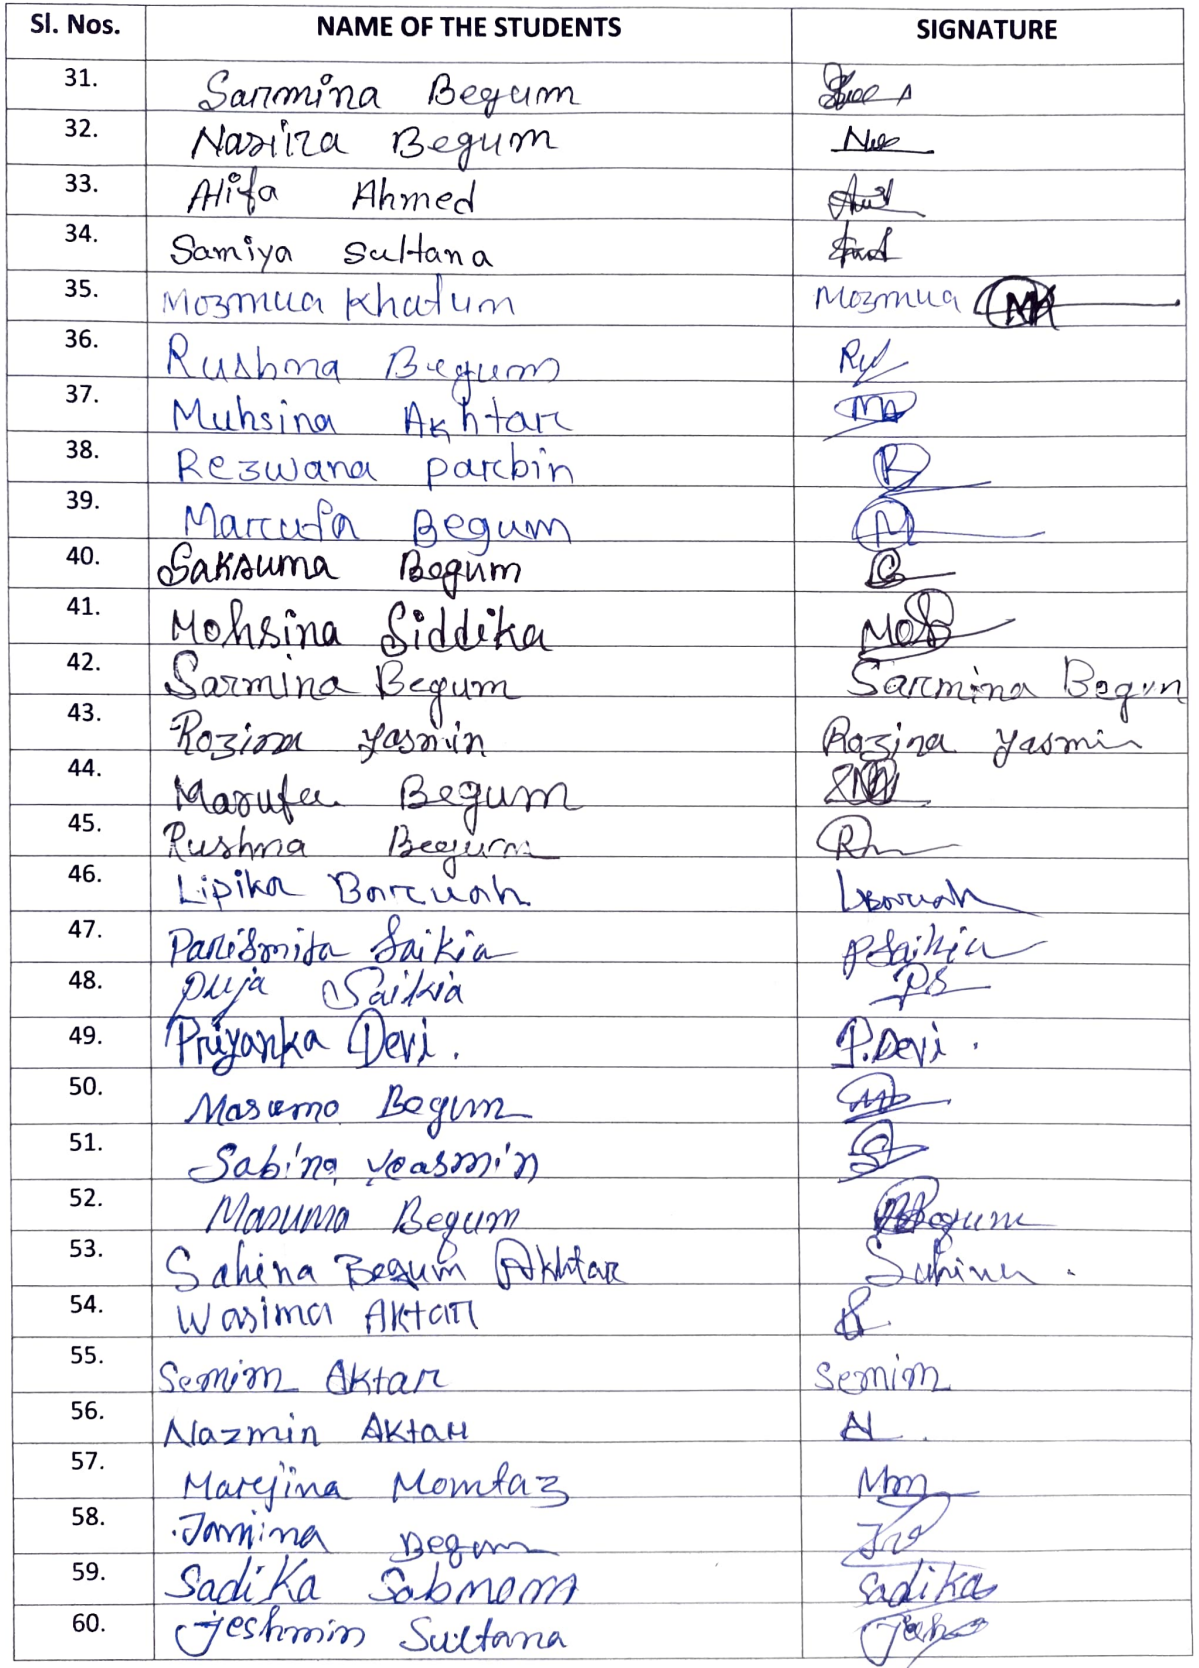 Sl. Nos. NAME OF THE STUDENTS SIGNATURE
31. Sarmina Begum
32. Nasirra Begum
33. Alifa Ahmed
34. Samiya Sultana
35. Mozmua Khatum Mozmua MK
36. Rushna Begum
37. Muhsina Akhtar MA
38. Rezwana parbin
39. Marufa Begum M
40. Saksuma Begum
41. Mohsina Siddika
42. Sarmina Begum Sarmina Begum
43. Rozina Yasmin Rozina Yasmin
44. Marufa Begum
45. Rushna Begum
46. Lipika Boruah LBoruah
47. Parismita Saikia PSaikia
48. puja Saikia PS
49. Priyanka Devi. P.Devi.
50. Masumo Begum
51. Sabina Yeasmin
52. Masuma Begum Begum
53. Sahina Begum Akhtar Sahina.
54. Wasima Aktar
55. Semim Aktar Semim
56. Nazmin Aktar N.
57. Marejina Momtaz
58. Jamina Begum
59. Sadika Sabnom Sadika
60. Jeshmin Sultana